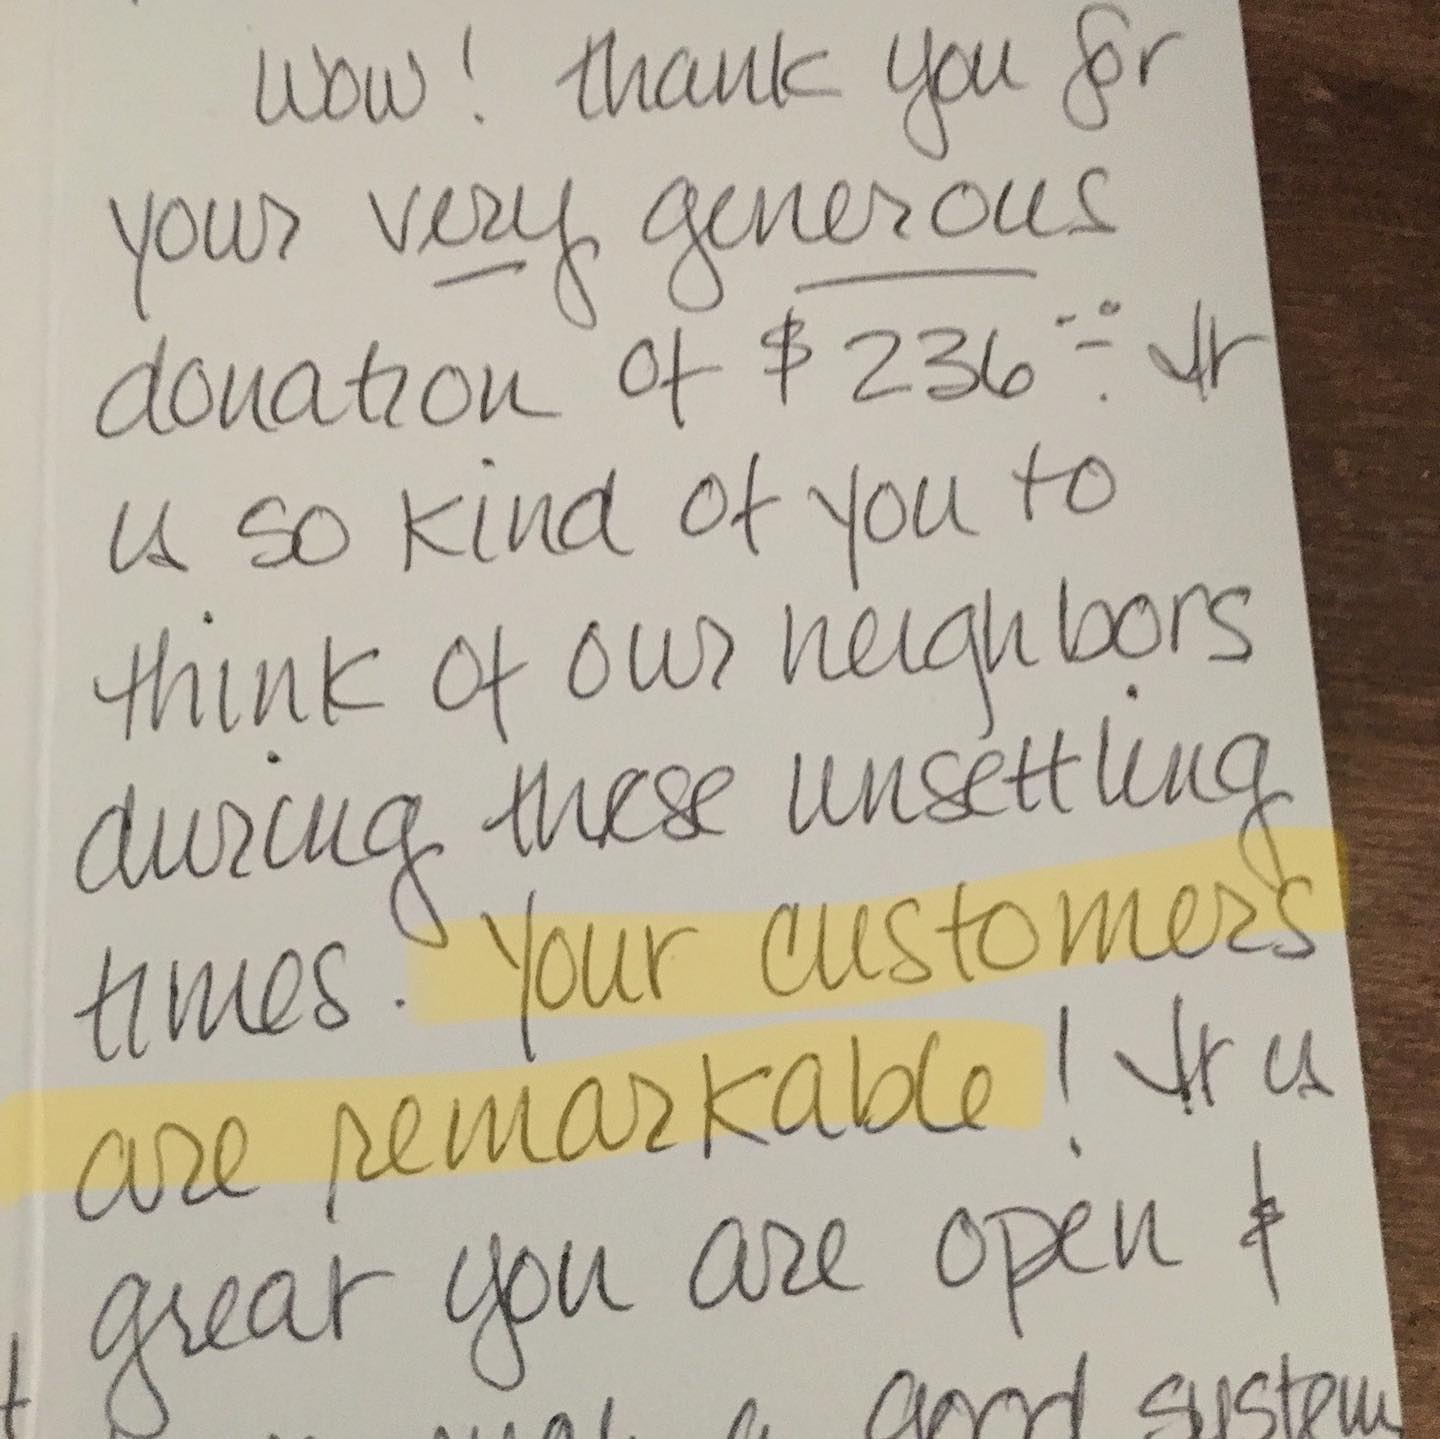 Wow! thank you for
your very generous
donation of $236 It
is so kind of you to
think of our neighbors
during these unsettling
times. Your customers
are remarkable! It is
great you are open &
a good system